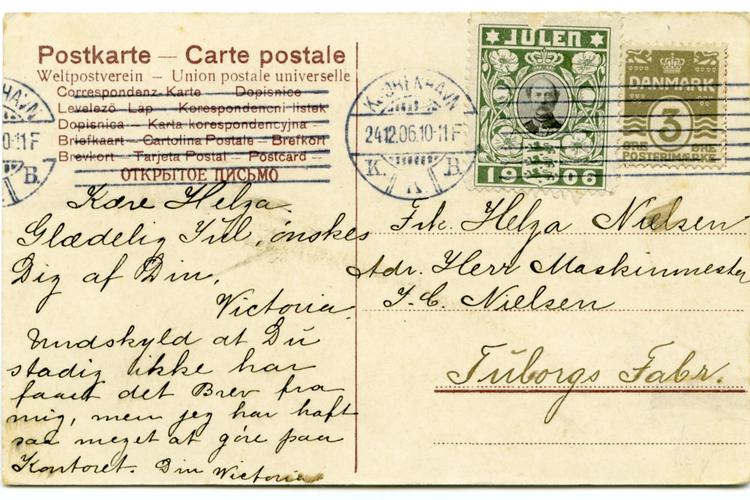 Postkarte — Carte postale
Weltpostverein — Union postale universelle
Correspondenz-Karte Dopisnice
Levelező-Lap — Korespondencni listek
Dopisnica — Karta korespondencyjna
Briefkaart — Cartolina Postale — Brefkort
Brevkort — Tarjeta Postal — Postcard —
ОТКРЫТОЕ ПИСЬМО
HAVN
0-11F
B.
KJØBENHAVN
24.12.06.10-11F
K. K B.
JULEN
1906
DANMARK
3
ØRE ØRE
POSTFRIMÆRKE
Kære Helga.
Glædelig Jul, ønskes
Dig af Din,
Victoria.
Undskyld at Du
stadig ikke har
faaet det Brev fra
mig, men jeg har haft
saa meget at göre paa
Kontoret. Din Victoria
Frk. Helga Nielsen
Adr. Herr Maskinmester
J. C. Nielsen
Tuborgs Fabr.